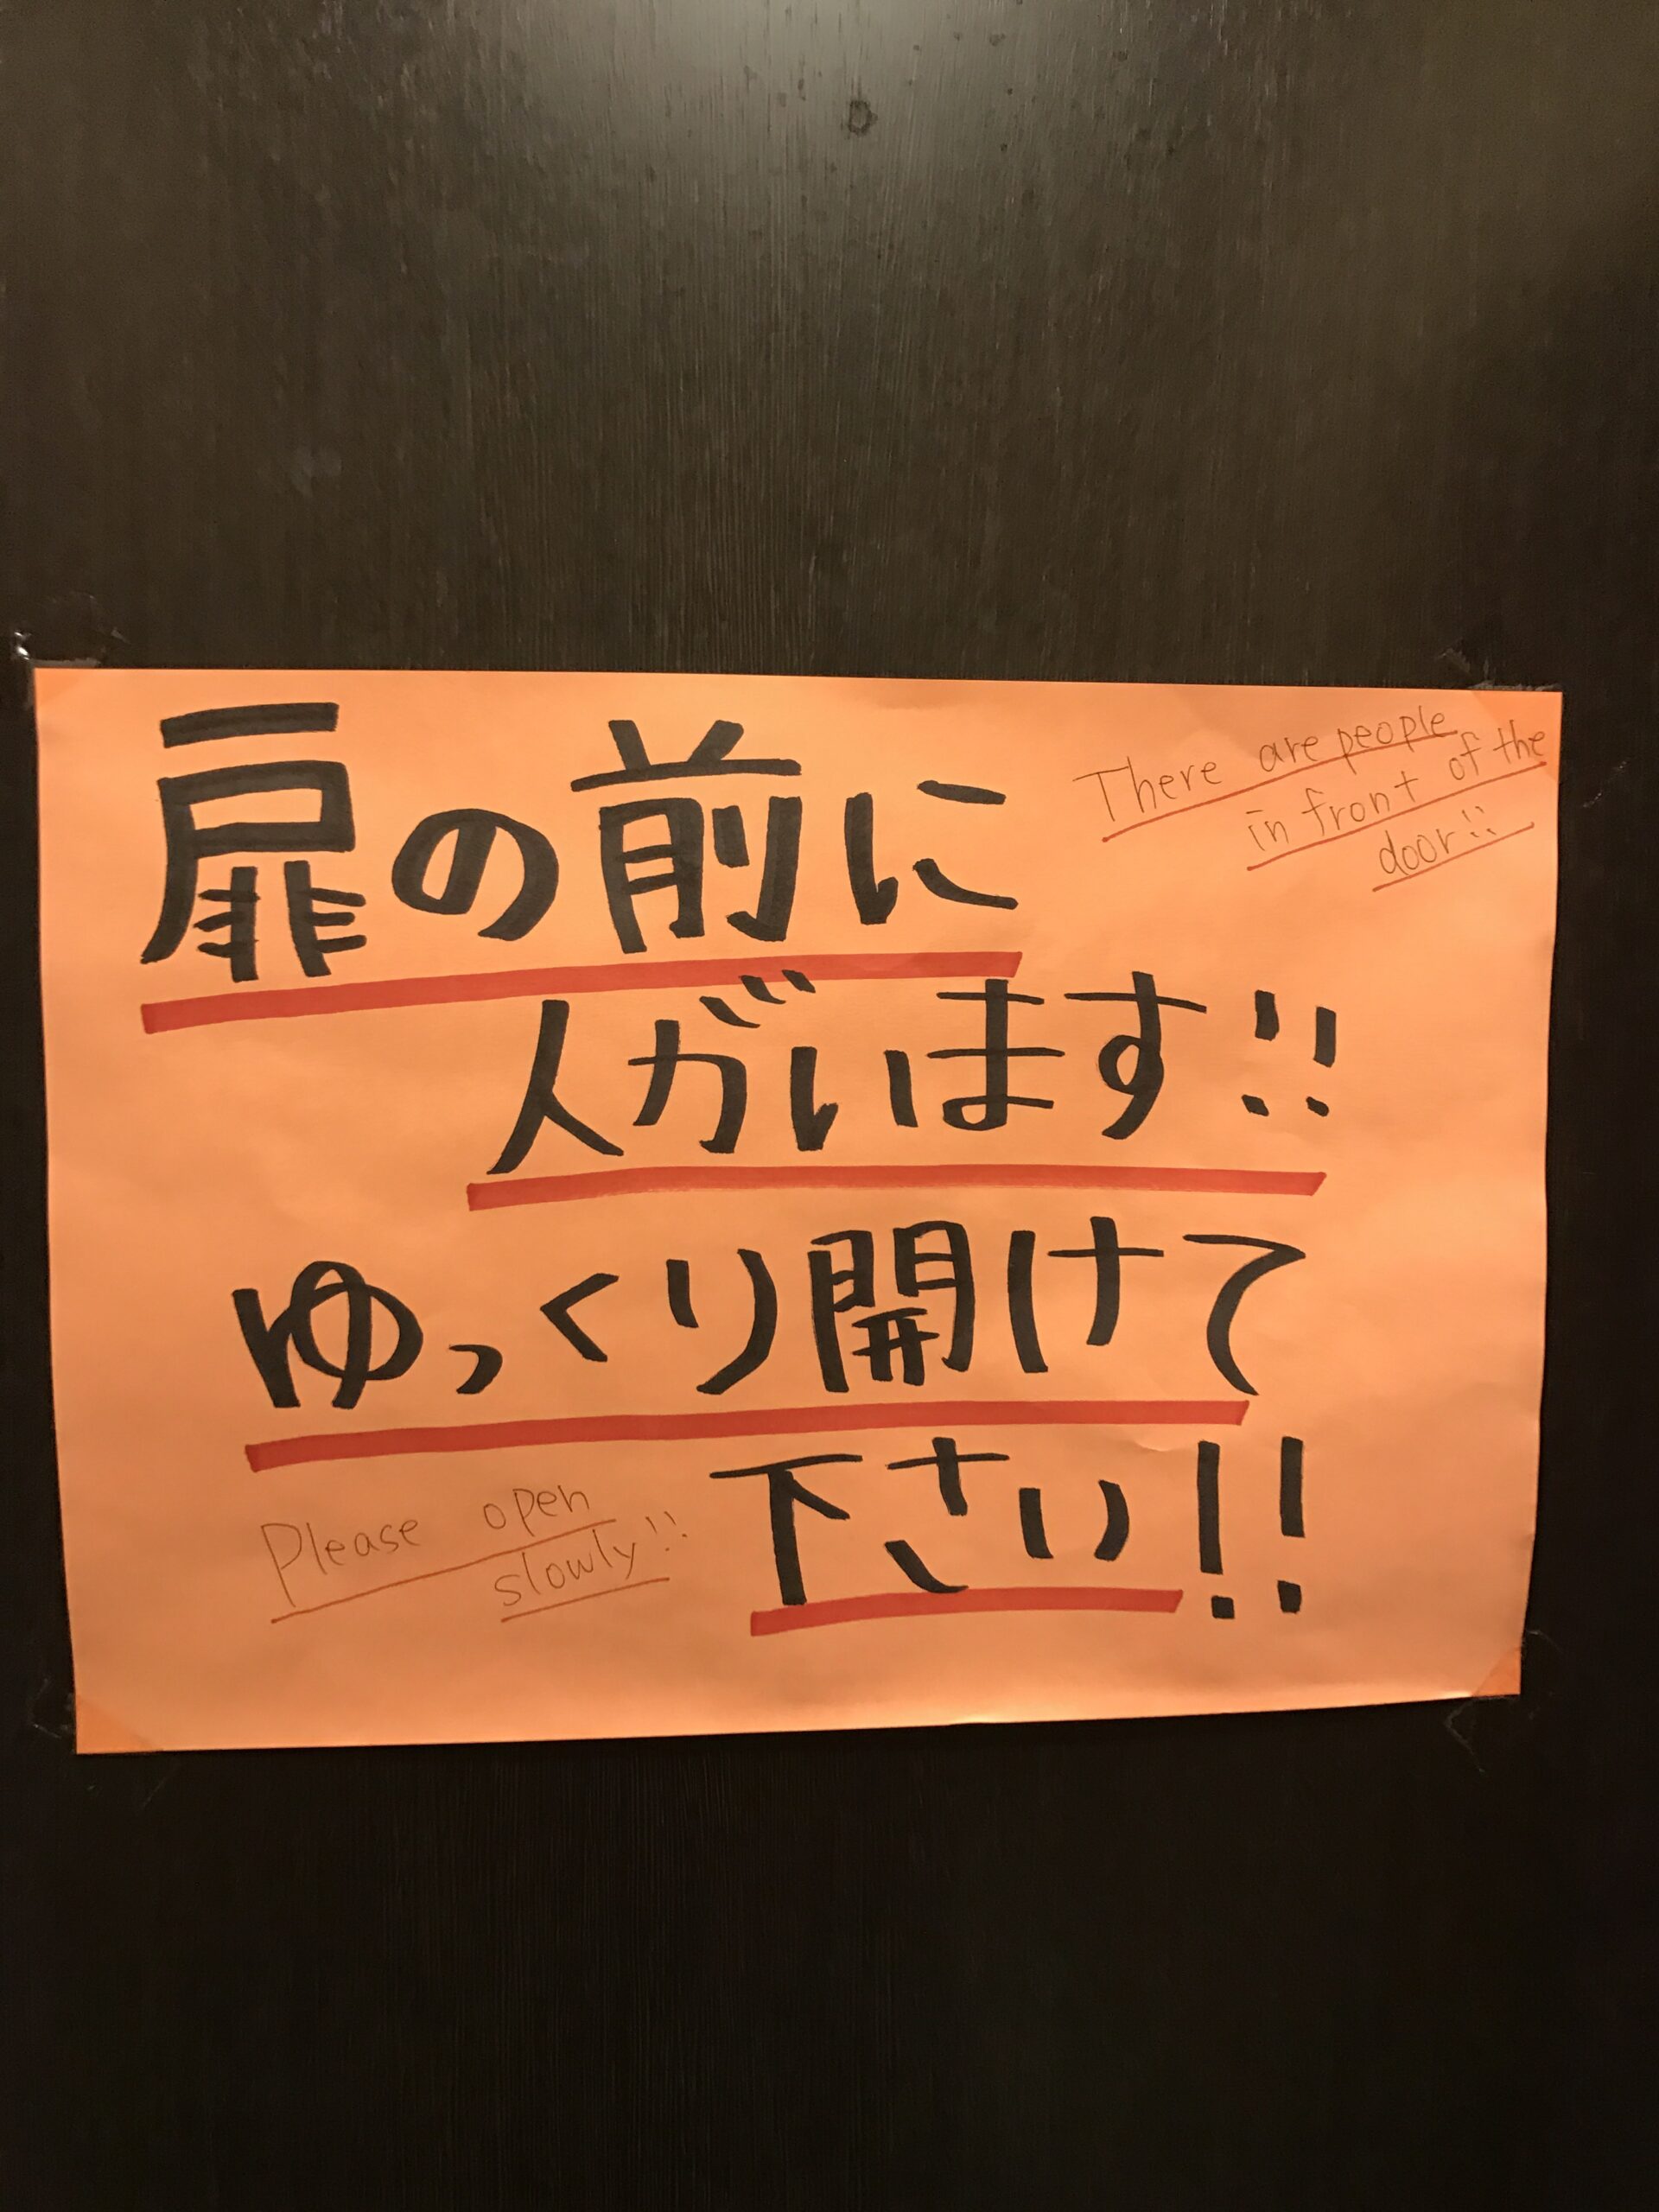 扉の前に
There are people
in front of the
door!!
人がいます!!
ゆっくり開けて
下さい!!
Please open
slowly!!